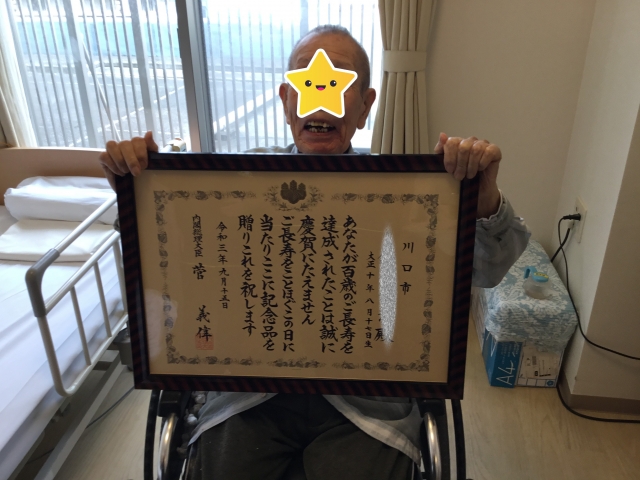 川口市
殿
大正十年八月十七日生
あなたが百歳のご長寿を
達成されたことは誠に
慶賀にたえません
ご長寿をことほぐこの日に
当たりここに記念品を
贈りこれを祝します
令和三年九月十五日
内閣総理大臣 菅 義偉
A4